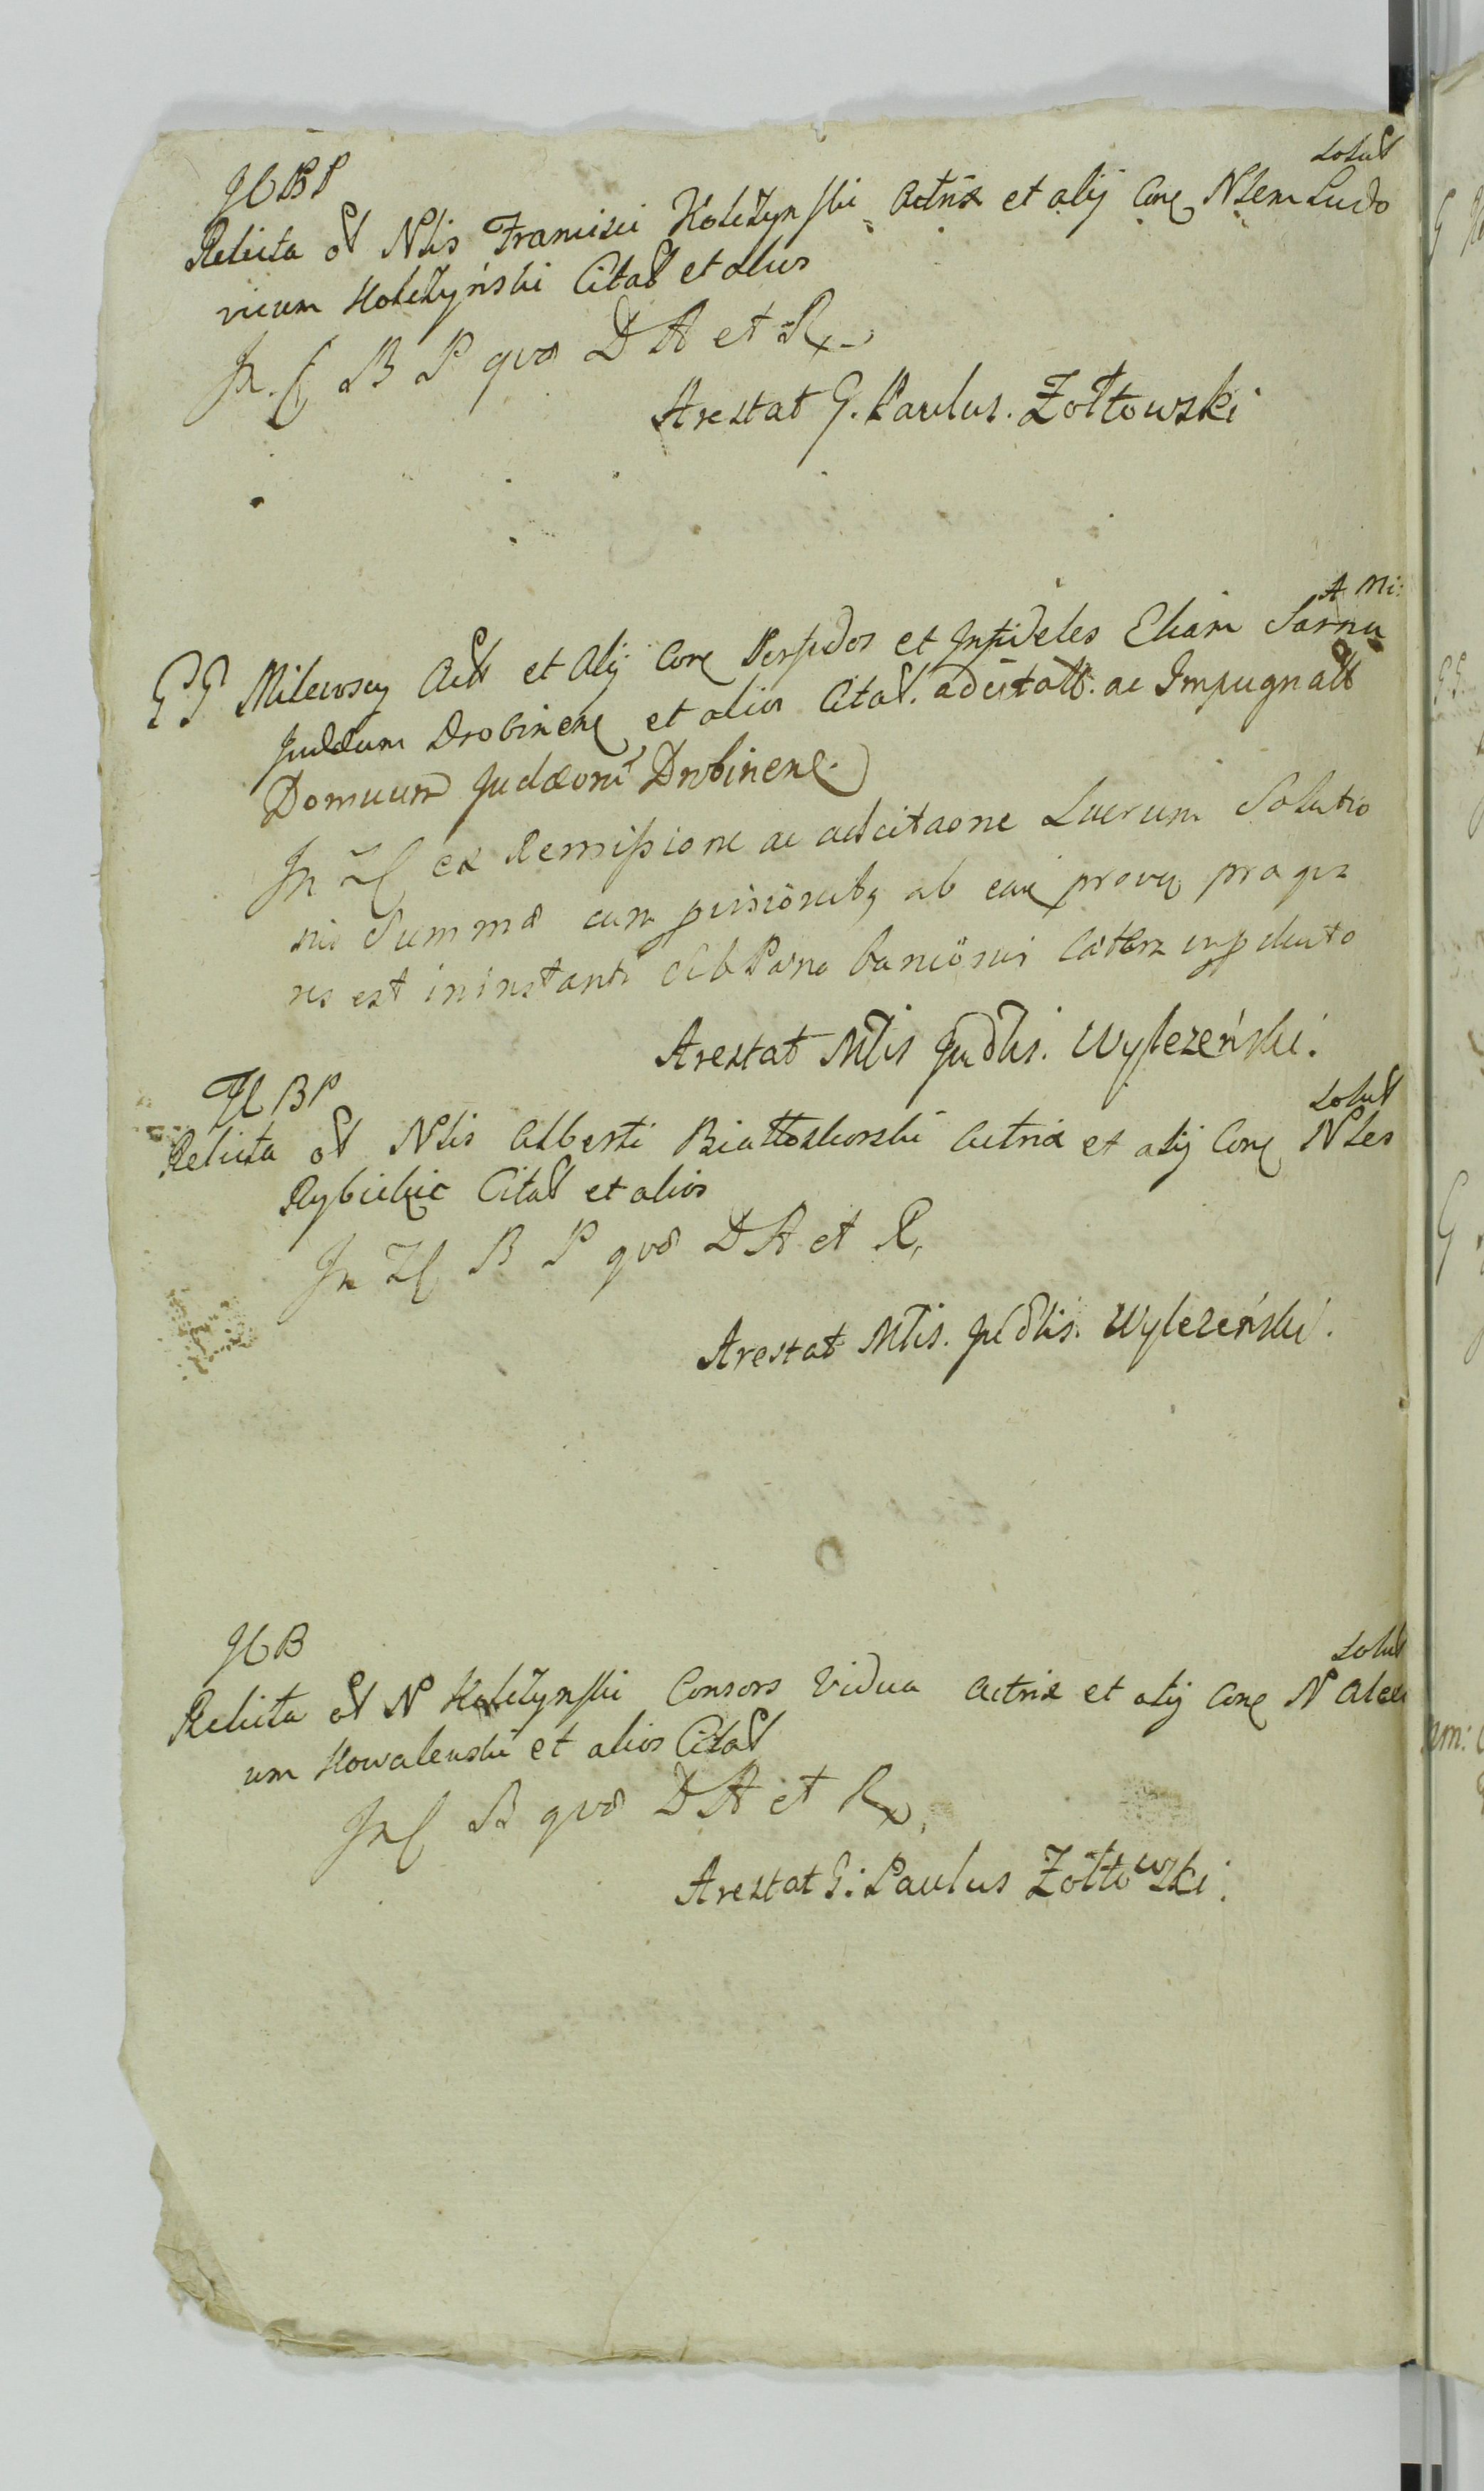 H B P
solut
Relicta ol Nlis Francisci Kolczynski Actrix et alij Con Nlem Ludo
vicum Kolczyński Citat et alios
In f B P qvo D A et R
Arestat G. Paulus. Zołtowski
A Mi:
GG Milewscy Act et Alij Con Perfidos et Infideles Eliam
Judæum Drobinen et alios Citat. adcitatt. ac Impugnatt
Domuum Judæoru Drobinen.
In ex Remissione ac adcitaone Lucrum Solutio
nis Summæ cum ab
est in instanti sub Pæna
Arestat Mlis Judlis. Wylezeński.
H B P
solut
Relicta ol Nlis Alberti Białłoskorski Actrix et alij Con Nles
Citat et alios
In B P qvo D A et R
Arestat Mlis. Judlis. Wylezeński.
H B
solut
Relicta ol N Kolczynski Consors Vidua Actrix et alij Con N
um Kowalewski et alios Citat
In f B qvo D A et R
Arestat G: Paulus Zołtowski.